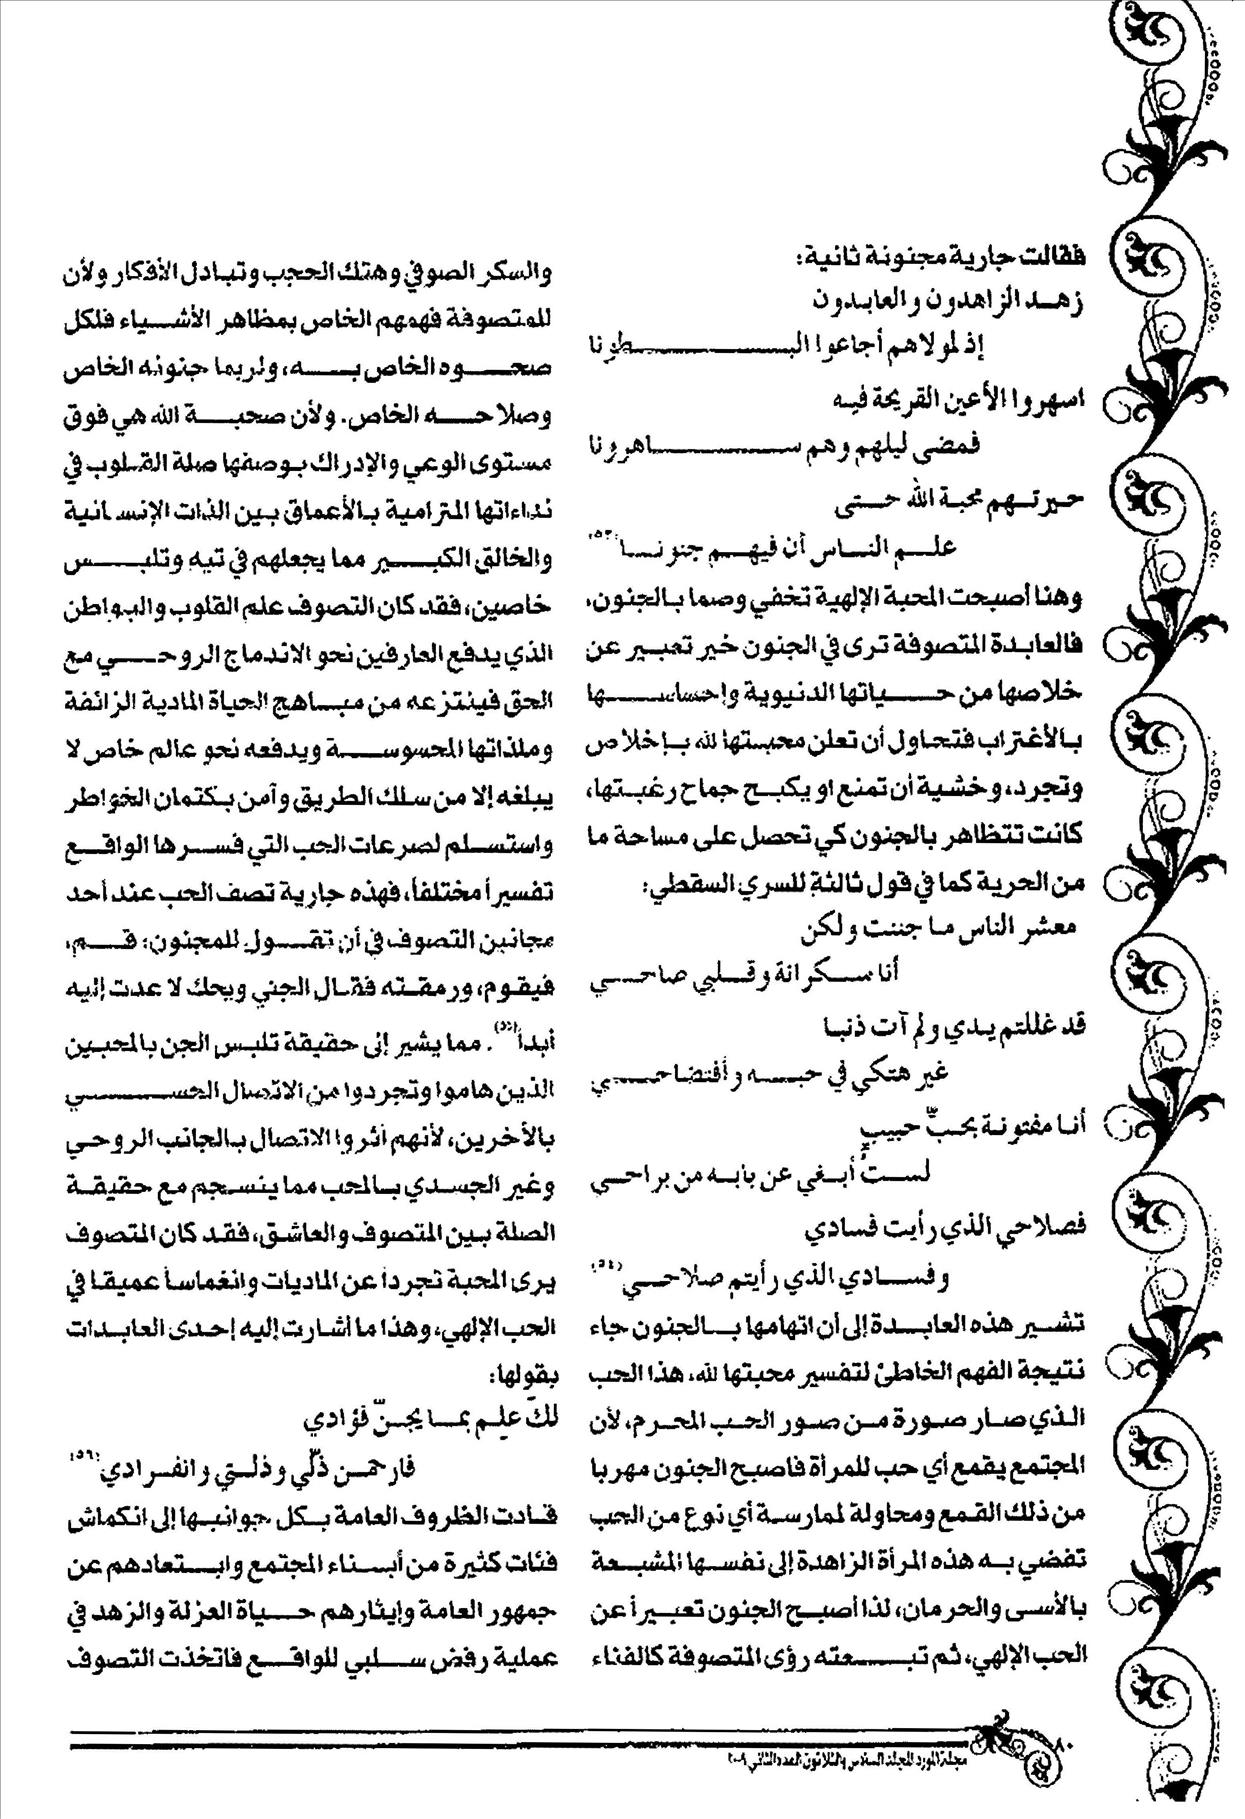 فقالت جارية مجنونة ثانية:
زهد الزاهدون والعابدون
إذ لمولاهم أجاعوا البطونا
اسهروا الأعين القريحة فيه
فمضى ليلهم وهم ساهرونا
حيرتهم محبة الله حتى
علم الناس أن فيهم جنونا(٥٣)
وهنا أصبحت المحبة الإلهية تخفي وصما بالجنون،
فالعابدة المتصوفة ترى في الجنون خير تعبير عن
خلاصها من حياتها الدنيوية وإحساسها
بالأغتراب فتحاول أن تعلن محبتها لله بإخلاص
وتجرد، وخشية أن تمنع او يكبح جماح رغبتها،
كانت تتظاهر بالجنون كي تحصل على مساحة ما
من الحرية كما في قول ثالثة للسري السقطي:
معشر الناس ما جننت ولكن
أنا سكرانة وقلبي صاحي
قد غللتم يدي ولم آت ذنبا
غير هتكي في حبه وأفتضاحي
أنا مفتونة بحبّ حبيبٍ
لستُ أبغي عن بابه من براحي
فصلاحي الذي رأيت فسادي
وفسادي الذي رأيتم صلاحي(٥٤)
تشير هذه العابدة إلى أن اتهامها بالجنون جاء
نتيجة الفهم الخاطئ لتفسير محبتها لله، هذا الحب
الذي صار صورة من صور الحب المحرم، لأن
المجتمع يقمع أي حب للمرأة فاصبح الجنون مهربا
من ذلك القمع ومحاولة لممارسة أي نوع من الحب
تفضي به هذه المرأة الزاهدة إلى نفسها المشبعة
بالأسى والحرمان، لذا أصبح الجنون تعبيرأ عن
الحب الإلهي، ثم تبعته رؤى المتصوفة كالفناء
والسكر الصوفي وهتك الحجب وتبادل الأفكار ولأن
للمتصوفة فهمهم الخاص بمظاهر الأشياء فلكل
صحوه الخاص به، ولربما جنونه الخاص
وصلاحه الخاص. ولأن صحبة الله هي فوق
مستوى الوعي والإدراك بوصفها صلة القلوب في
نداءاتها المترامية بالأعماق بين الذات الإنسانية
والخالق الكبير مما يجعلهم في تيه وتلبس
خاصين، فقد كان التصوف علم القلوب والبواطن
الذي يدفع العارفين نحو الاندماج الروحي مع
الحق فينتزعه من مباهج الحياة المادية الزائفة
وملذاتها المحسوسة ويدفعه نحو عالم خاص لا
يبلغه إلا من سلك الطريق وآمن بكتمان الخواطر
واستسلم لصرعات الحب التي فسرها الواقع
تفسيرأ مختلفأ، فهذه جارية تصف الحب عند أحد
مجانين التصوف في أن تقول للمجنون: قم،
فيقوم، ورمقته فقال الجني ويحك لا عدت إليه
أبدأ(٥٥). مما يشير إلى حقيقة تلبس الجن بالمحبين
الذين هاموا وتجردوا من الاتصال الحسي
بالأخرين، لأنهم آثروا الاتصال بالجانب الروحي
وغير الجسدي بالمحب مما ينسجم مع حقيقة
الصلة بين المتصوف والعاشق، فقد كان المتصوف
يرى المحبة تجردأ عن الماديات وانغماسأ عميقا في
الحب الإلهي، وهذا ما أشارت إليه إحدى العابدات
بقولها:
لكَ علم بما يجنّ فؤادي
فارحمن ذلّي وذلتي وانفرادي(٥٦)
قادت الظروف العامة بكل جوانبها إلى انكماش
فئات كثيرة من أبناء المجتمع وابتعادهم عن
جمهور العامة وإيثارهم حياة العزلة والزهد في
عملية رفض سلبي للواقع فاتخذت التصوف
٨٠
مجلة المورد المجلد السادس والثلاثون العدد الثاني ٢٠٠٩